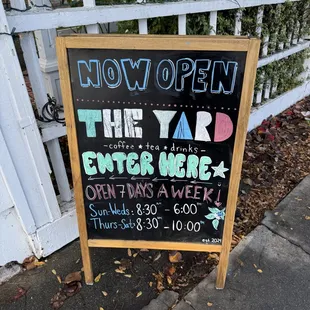 NOW OPEN
THE YARD
- coffee ★ tea ★ drinks -
ENTER HERE★
OPEN 7 DAYS A WEEK!
Sun-Weds: 8:30 - 6:00
Thurs-Sat: 8:30 - 10:00
est. 2021